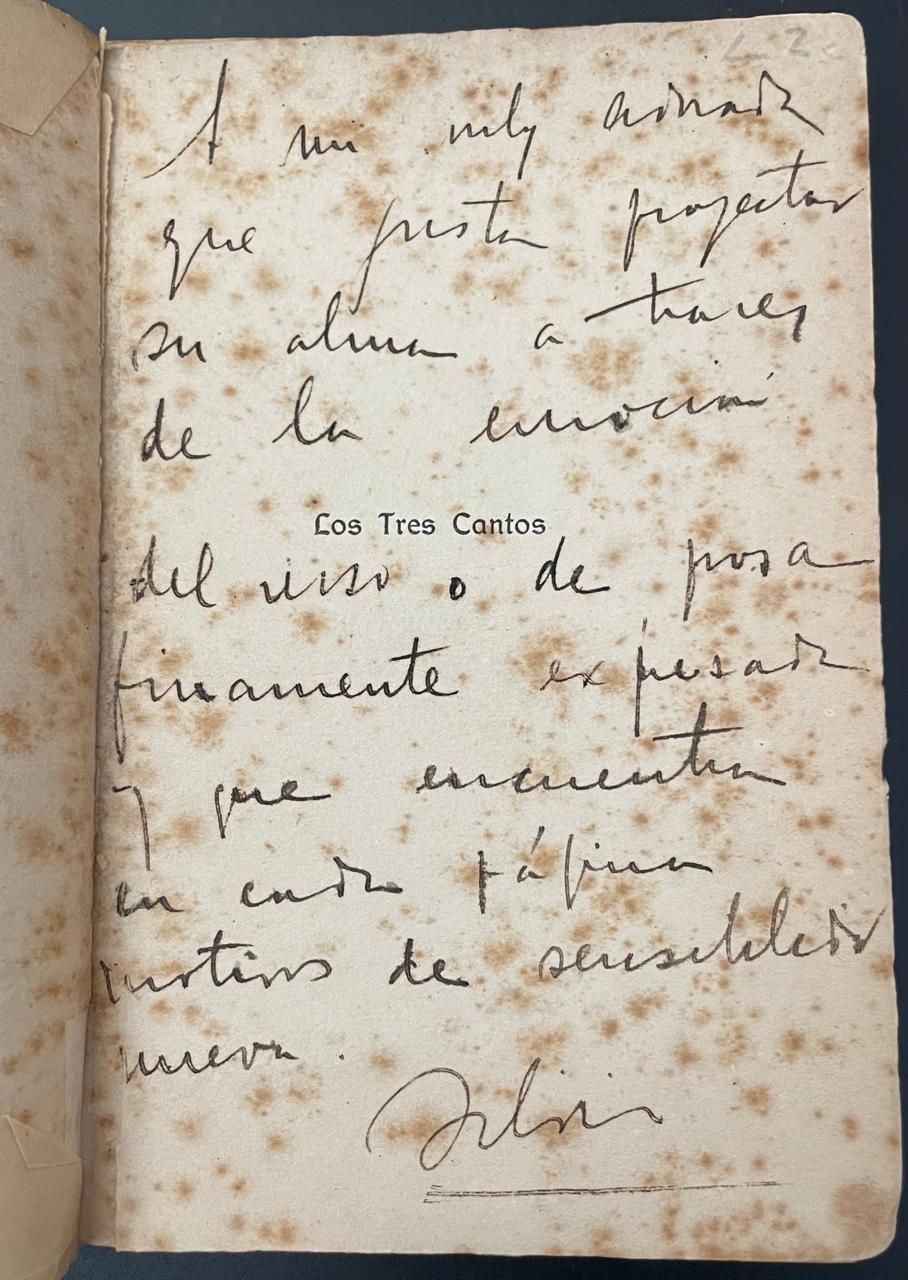 A mi adorada
que gusta proyectar
su alma a traves
de la emoción
Los Tres Cantos
del verso o de prosa
finamente expresada
y que encuentra
en cada página
motivos de sensibilidad
nueva.